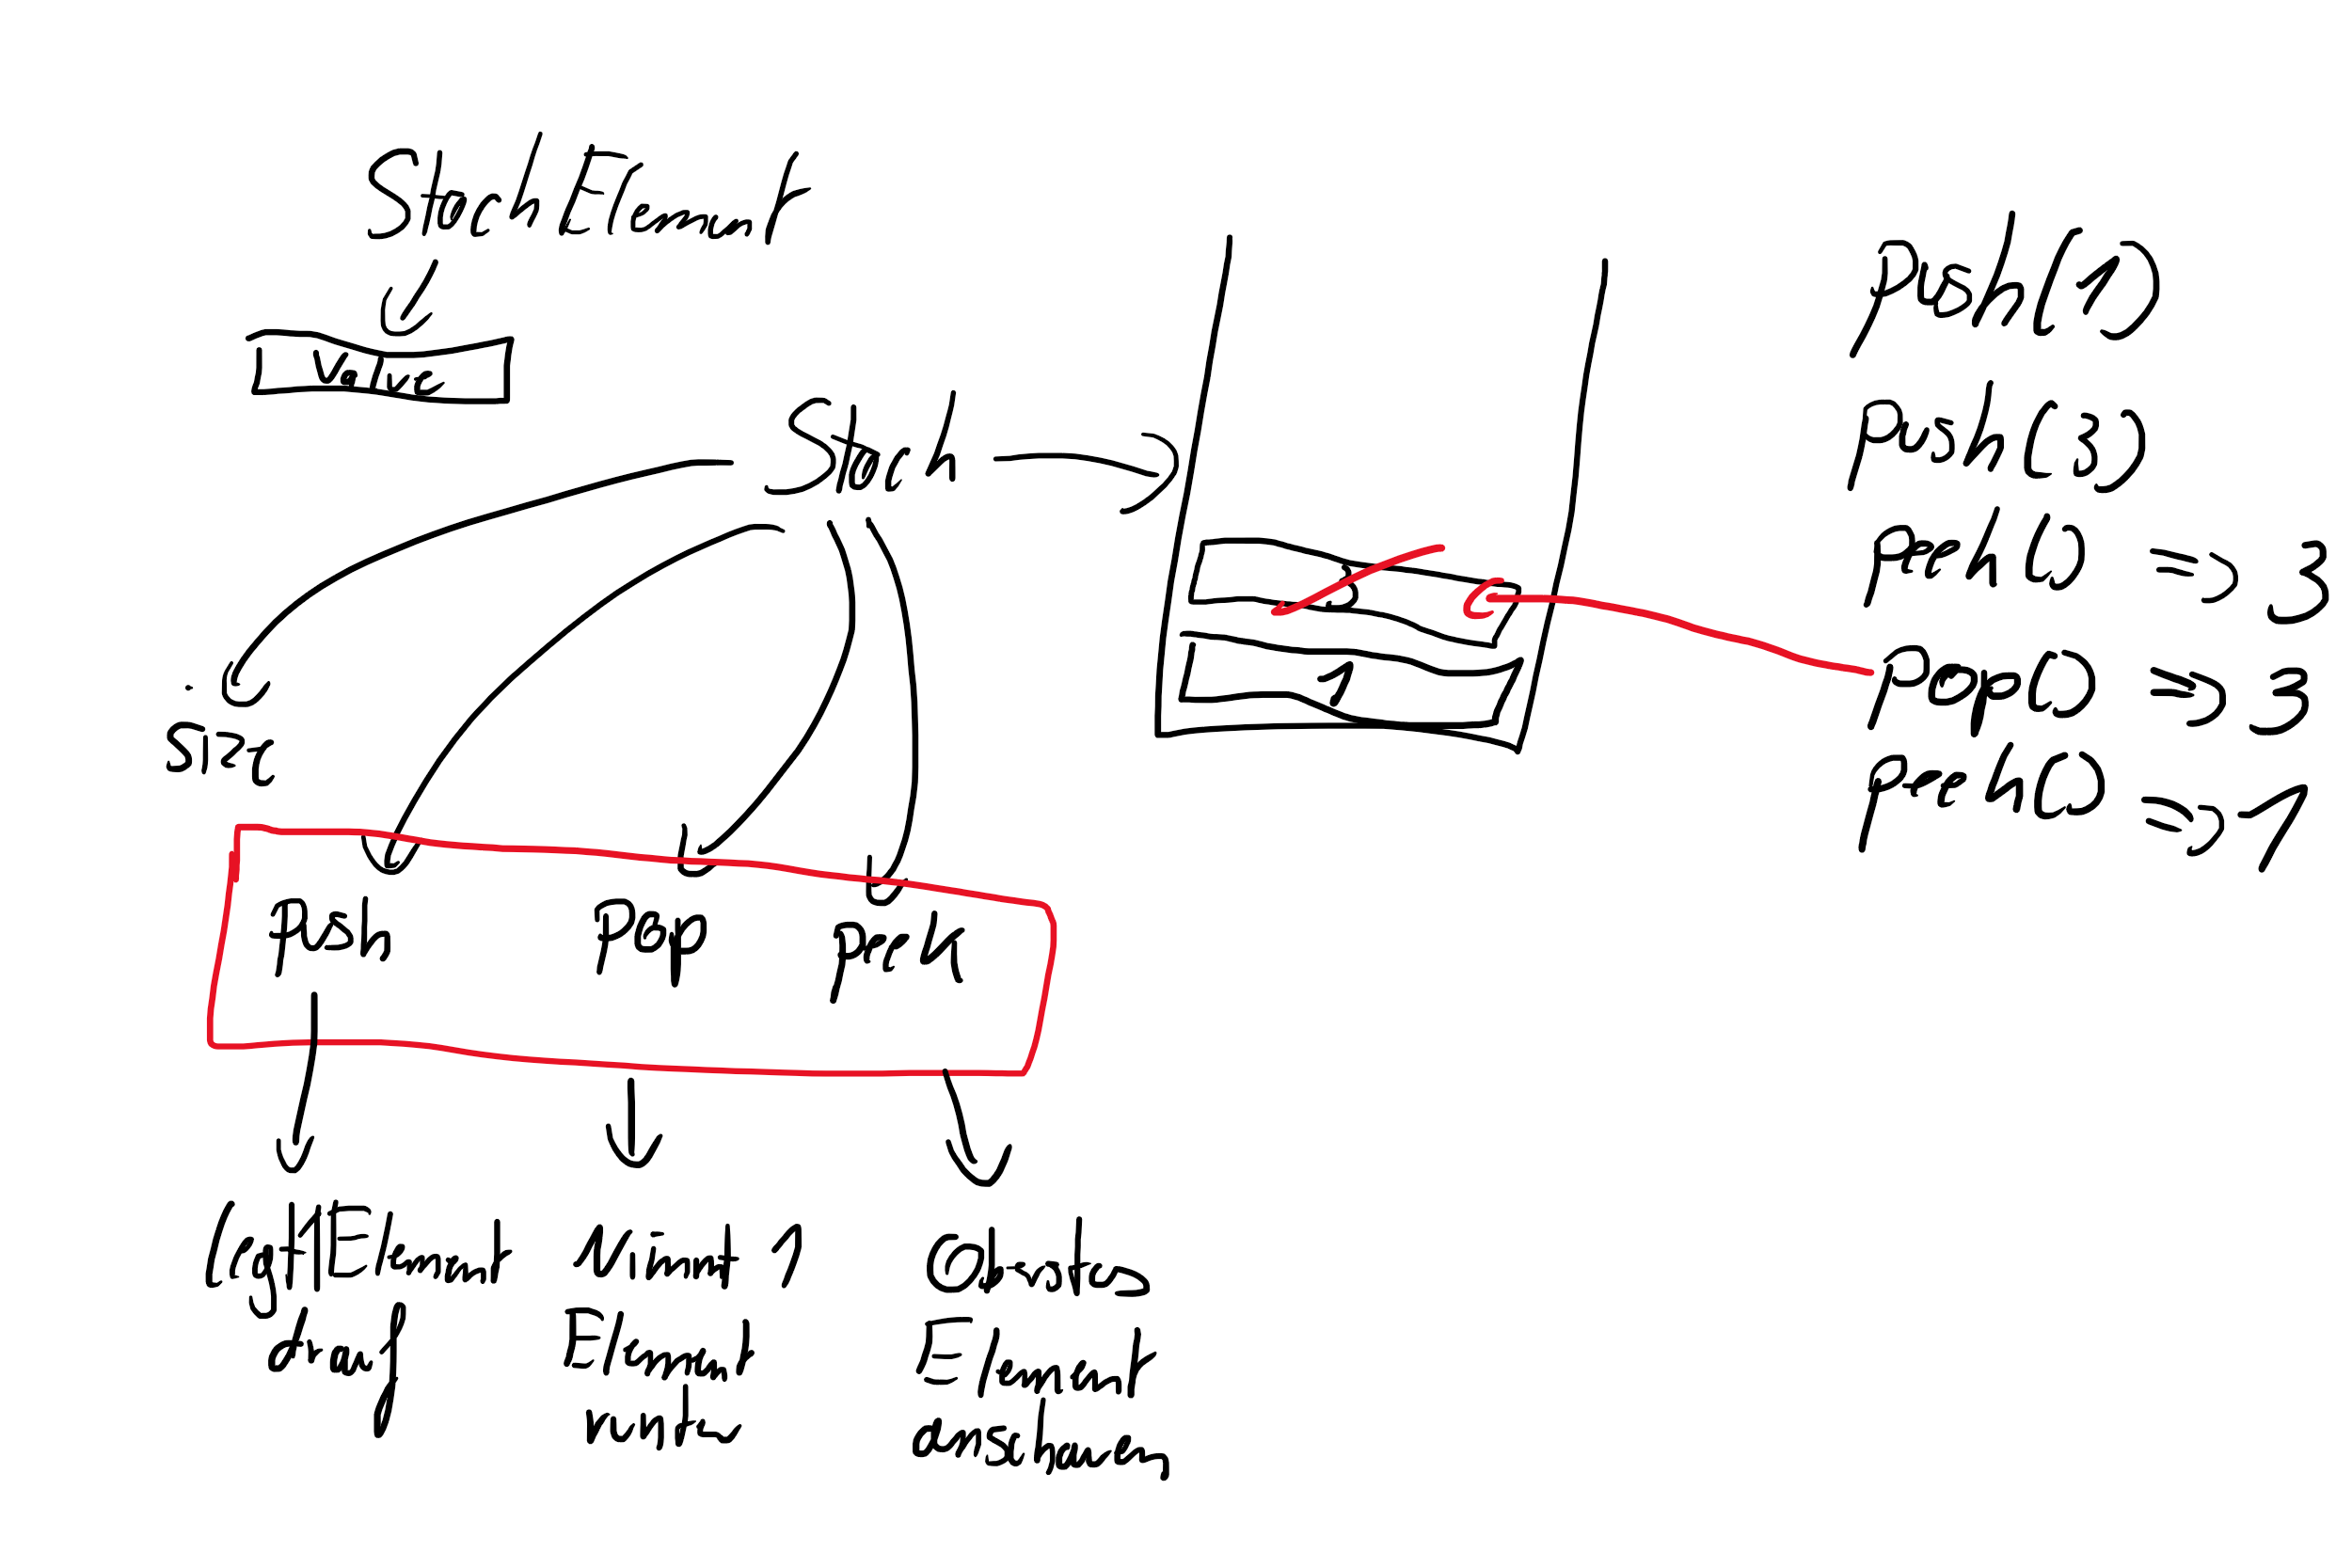 Stack Element
value
Stack
size
push
pop
peek
legt 1 Element
drauf
nimmt 1
Element
runter
Oberstes
Element
anschauen
3
1
push(1)
push(3)
peek() => 3
pop() => 3
peek() => 1